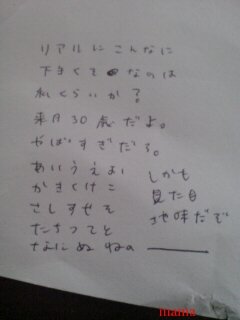 リアルにこんなに
下手くそなのは
私くらいか?
来月30歳だよ。
やばすぎだろ。
あいうえお
かきくけこ
さしすせそ
たちつてと
なにぬねの
しかも
見た目
地味だぞ
mama